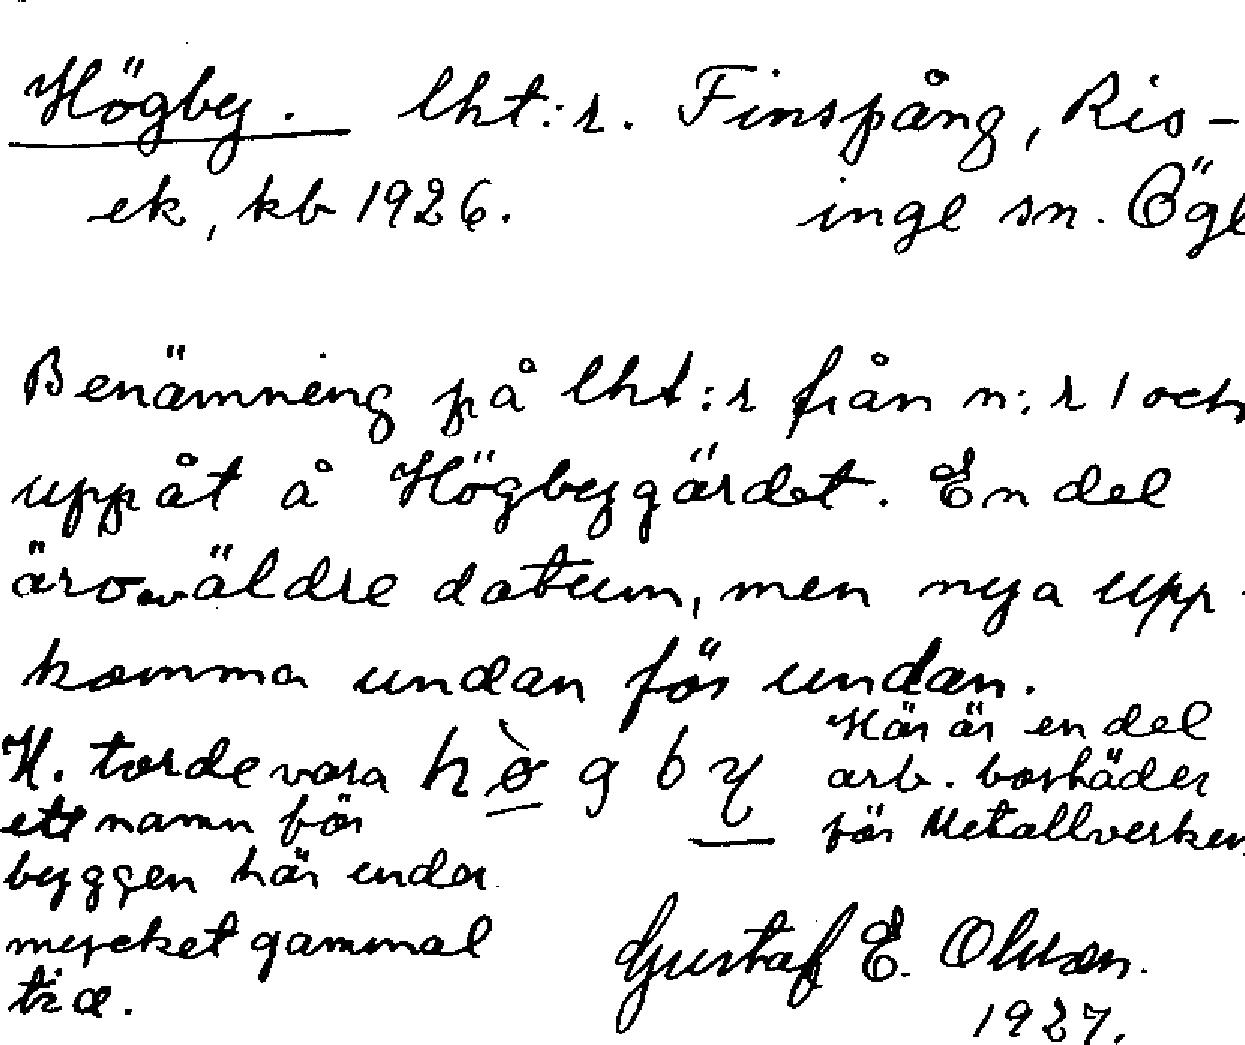 Högby. lht:r. Finspång, Ris-
ek, kb 1926. inge sn. Ögl
Benämning på lht:r från n:r 1 och
uppåt å Högbygärdet. En del
äro av äldre datum, men nya upp-
komma undan för undan.
H. torde vara
ett namn för
byggen här under
mycket gammal
tid.
hògby
Här är en del
arb. bostäder
för Metallverken
Gustaf E. Olsson.
1927.